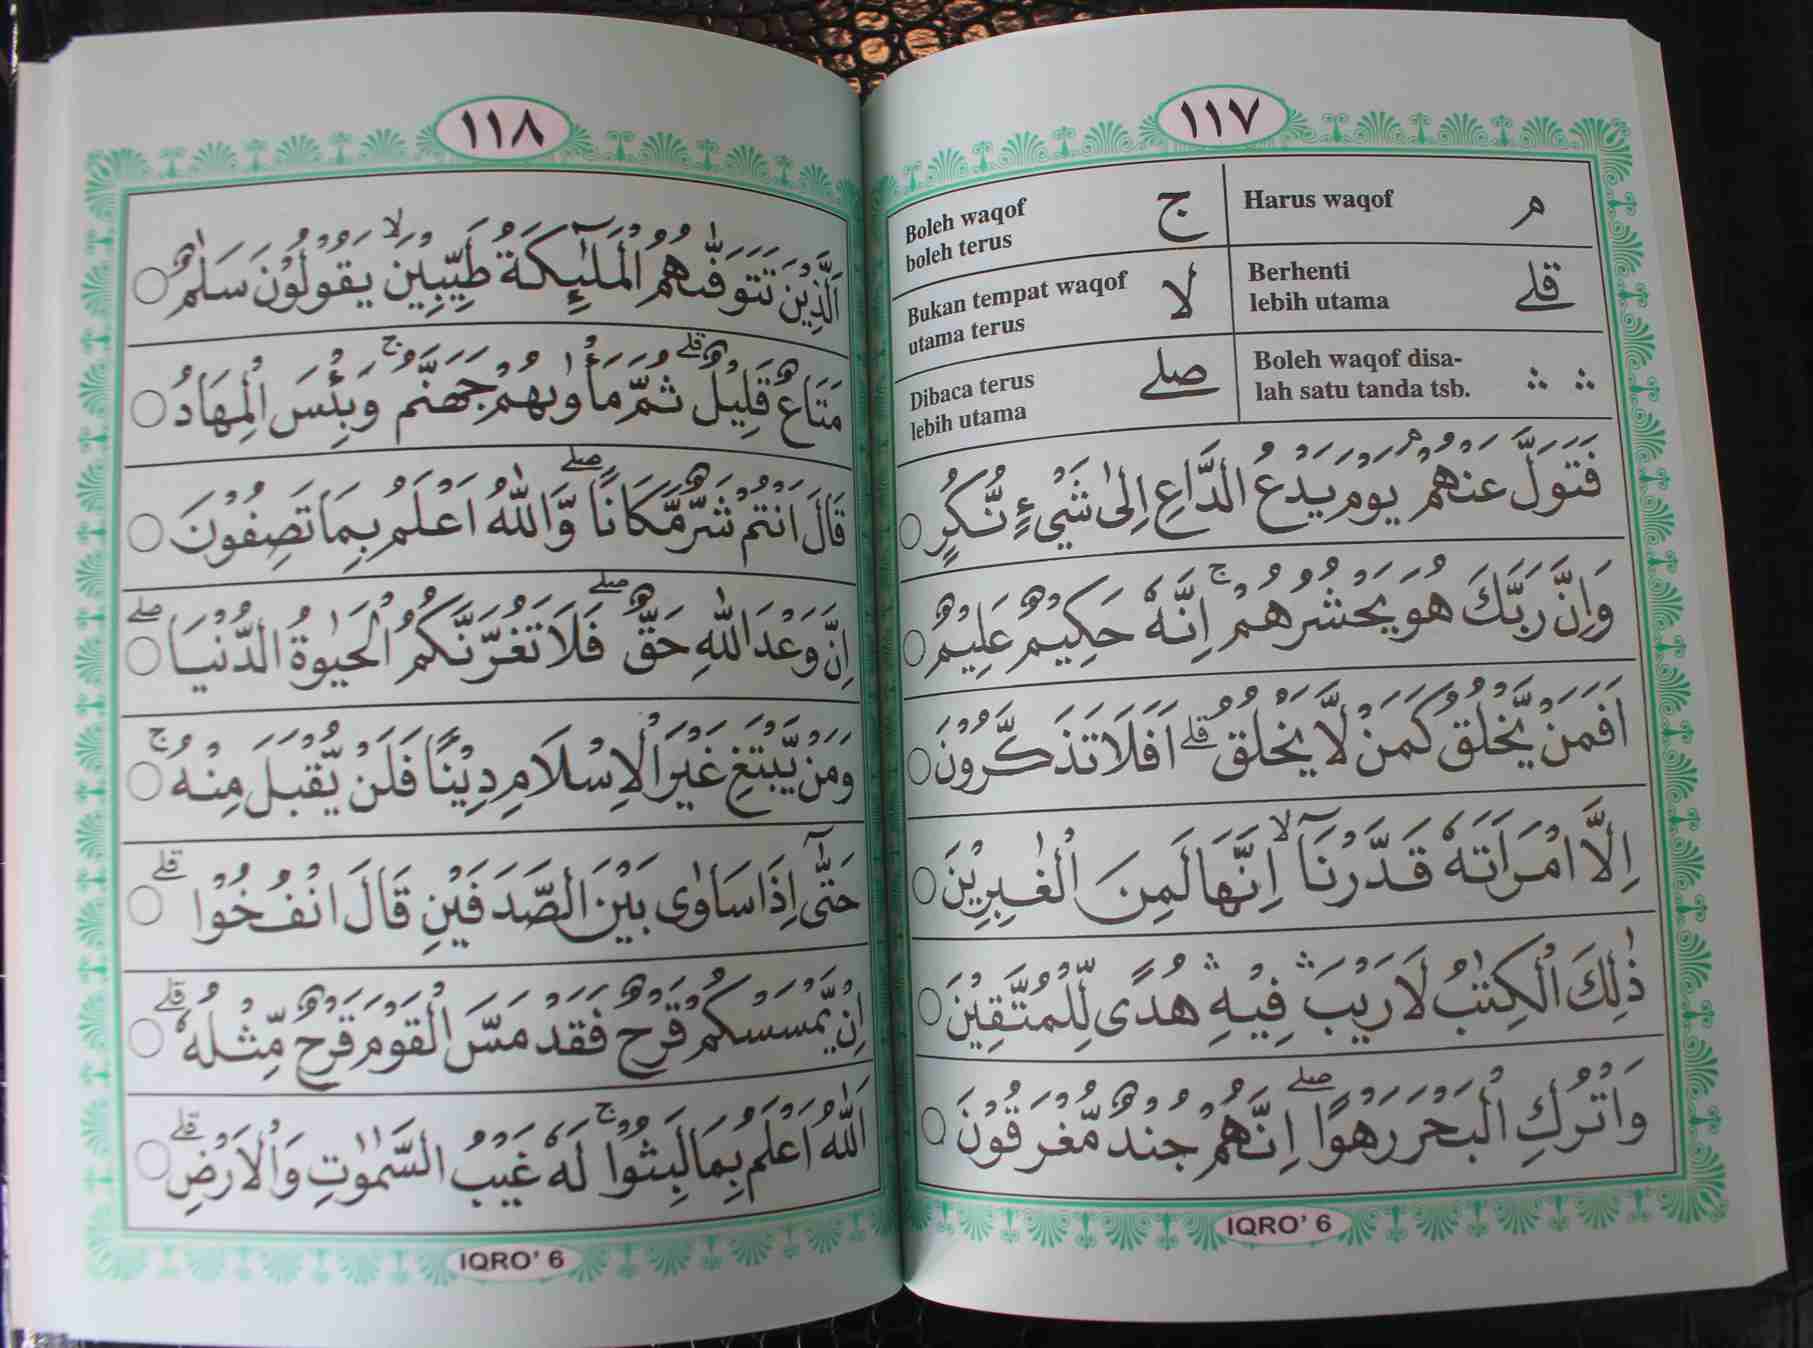 ١١٧
Harus waqof م
Boleh waqof ج
boleh terus
Berhenti قلے
lebih utama
Bukan tempat waqof لا
utama terus
Boleh waqof disa- ۛ ۛ
lah satu tanda tsb.
Dibaca terus صلے
lebih utama
فَتَوَلَّ عَنْهُمْ ۘ يَوْمَ يَدْعُ الدَّاعِ اِلٰى شَيْءٍ نُّكُرٍ ○
وَاِنَّ رَبَّكَ هُوَ يَحْشُرُهُمْ ۚ اِنَّهٗ حَكِيْمٌ عَلِيْمٌ ○
اَفَمَنْ يَّخْلُقُ كَمَنْ لَّا يَخْلُقُ ۗ اَفَلَا تَذَكَّرُوْنَ ○
اِلَّا امْرَاَتَهٗ قَدَّرْنَآ ۙ اِنَّهَا لَمِنَ الْغٰبِرِيْنَ ○
ذٰلِكَ الْكِتٰبُ لَا رَيْبَ ۛ فِيْهِ ۛ هُدًى لِّلْمُتَّقِيْنَ ○
وَاتْرُكِ الْبَحْرَ رَهْوًا ۖ اِنَّهُمْ جُنْدٌ مُّغْرَقُوْنَ ○
IQRO' 6
١١٨
الَّذِيْنَ تَتَوَفّٰىهُمُ الْمَلٰۤىِٕكَةُ طَيِّبِيْنَ ۙ يَقُوْلُوْنَ سَلٰمٌ ○
مَتَاعٌ قَلِيْلٌ ۗ ثُمَّ مَأْوٰىهُمْ جَهَنَّمُ ۚ وَبِئْسَ الْمِهَادُ ○
قَالَ اَنْتُمْ شَرٌّ مَّكَانًا ۖ وَّاللّٰهُ اَعْلَمُ بِمَا تَصِفُوْنَ ○
اِنَّ وَعْدَ اللّٰهِ حَقٌّ ۖ فَلَا تَغُرَّنَّكُمُ الْحَيٰوةُ الدُّنْيَا ۖ ○
وَمَنْ يَّبْتَغِ غَيْرَ الْاِسْلَامِ دِيْنًا فَلَنْ يُّقْبَلَ مِنْهُ ۚ ○
حَتّٰٓى اِذَا سَاوٰى بَيْنَ الصَّدَفَيْنِ قَالَ انْفُخُوْا ۗ ○
اِنْ يَّمْسَسْكُمْ قَرْحٌ فَقَدْ مَسَّ الْقَوْمَ قَرْحٌ مِّثْلُهٗ ۗ ○
اَللّٰهُ اَعْلَمُ بِمَا لَبِثُوْا ۚ لَهٗ غَيْبُ السَّمٰوٰتِ وَالْاَرْضِ ۗ ○
IQRO' 6